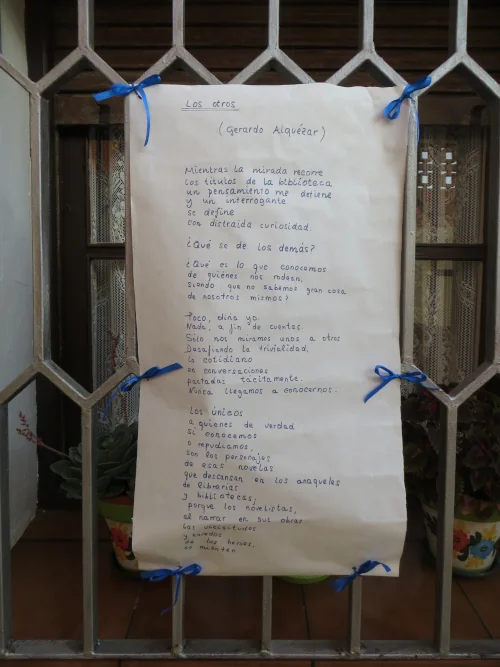 Los otros
(Gerardo Alquézar)
Mientras la mirada recorre
los títulos de la biblioteca
un pensamiento me detiene
y un interrogante
se define
con distraída curiosidad.
¿Qué se de los demás?
¿Qué es lo que conocemos
de quiénes nos rodean,
siendo que no sabemos gran cosa
de nosotros mismos?
Poco, diría yo.
Nada, a fin de cuentas.
Sólo nos miramos unos a otros
Desafiando la trivialidad,
lo cotidiano
en conversaciones
pactadas tácitamente.
Nunca llegamos a conocernos.
Los únicos
a quienes de verdad
sí conocemos
o repudiamos,
son los personajes
de esas novelas
que descansan en los anaqueles
de librerías
y bibliotecas,
porque los novelistas,
al narrar en sus obras
las vicisitudes
y enredos
de los héroes,
no mienten